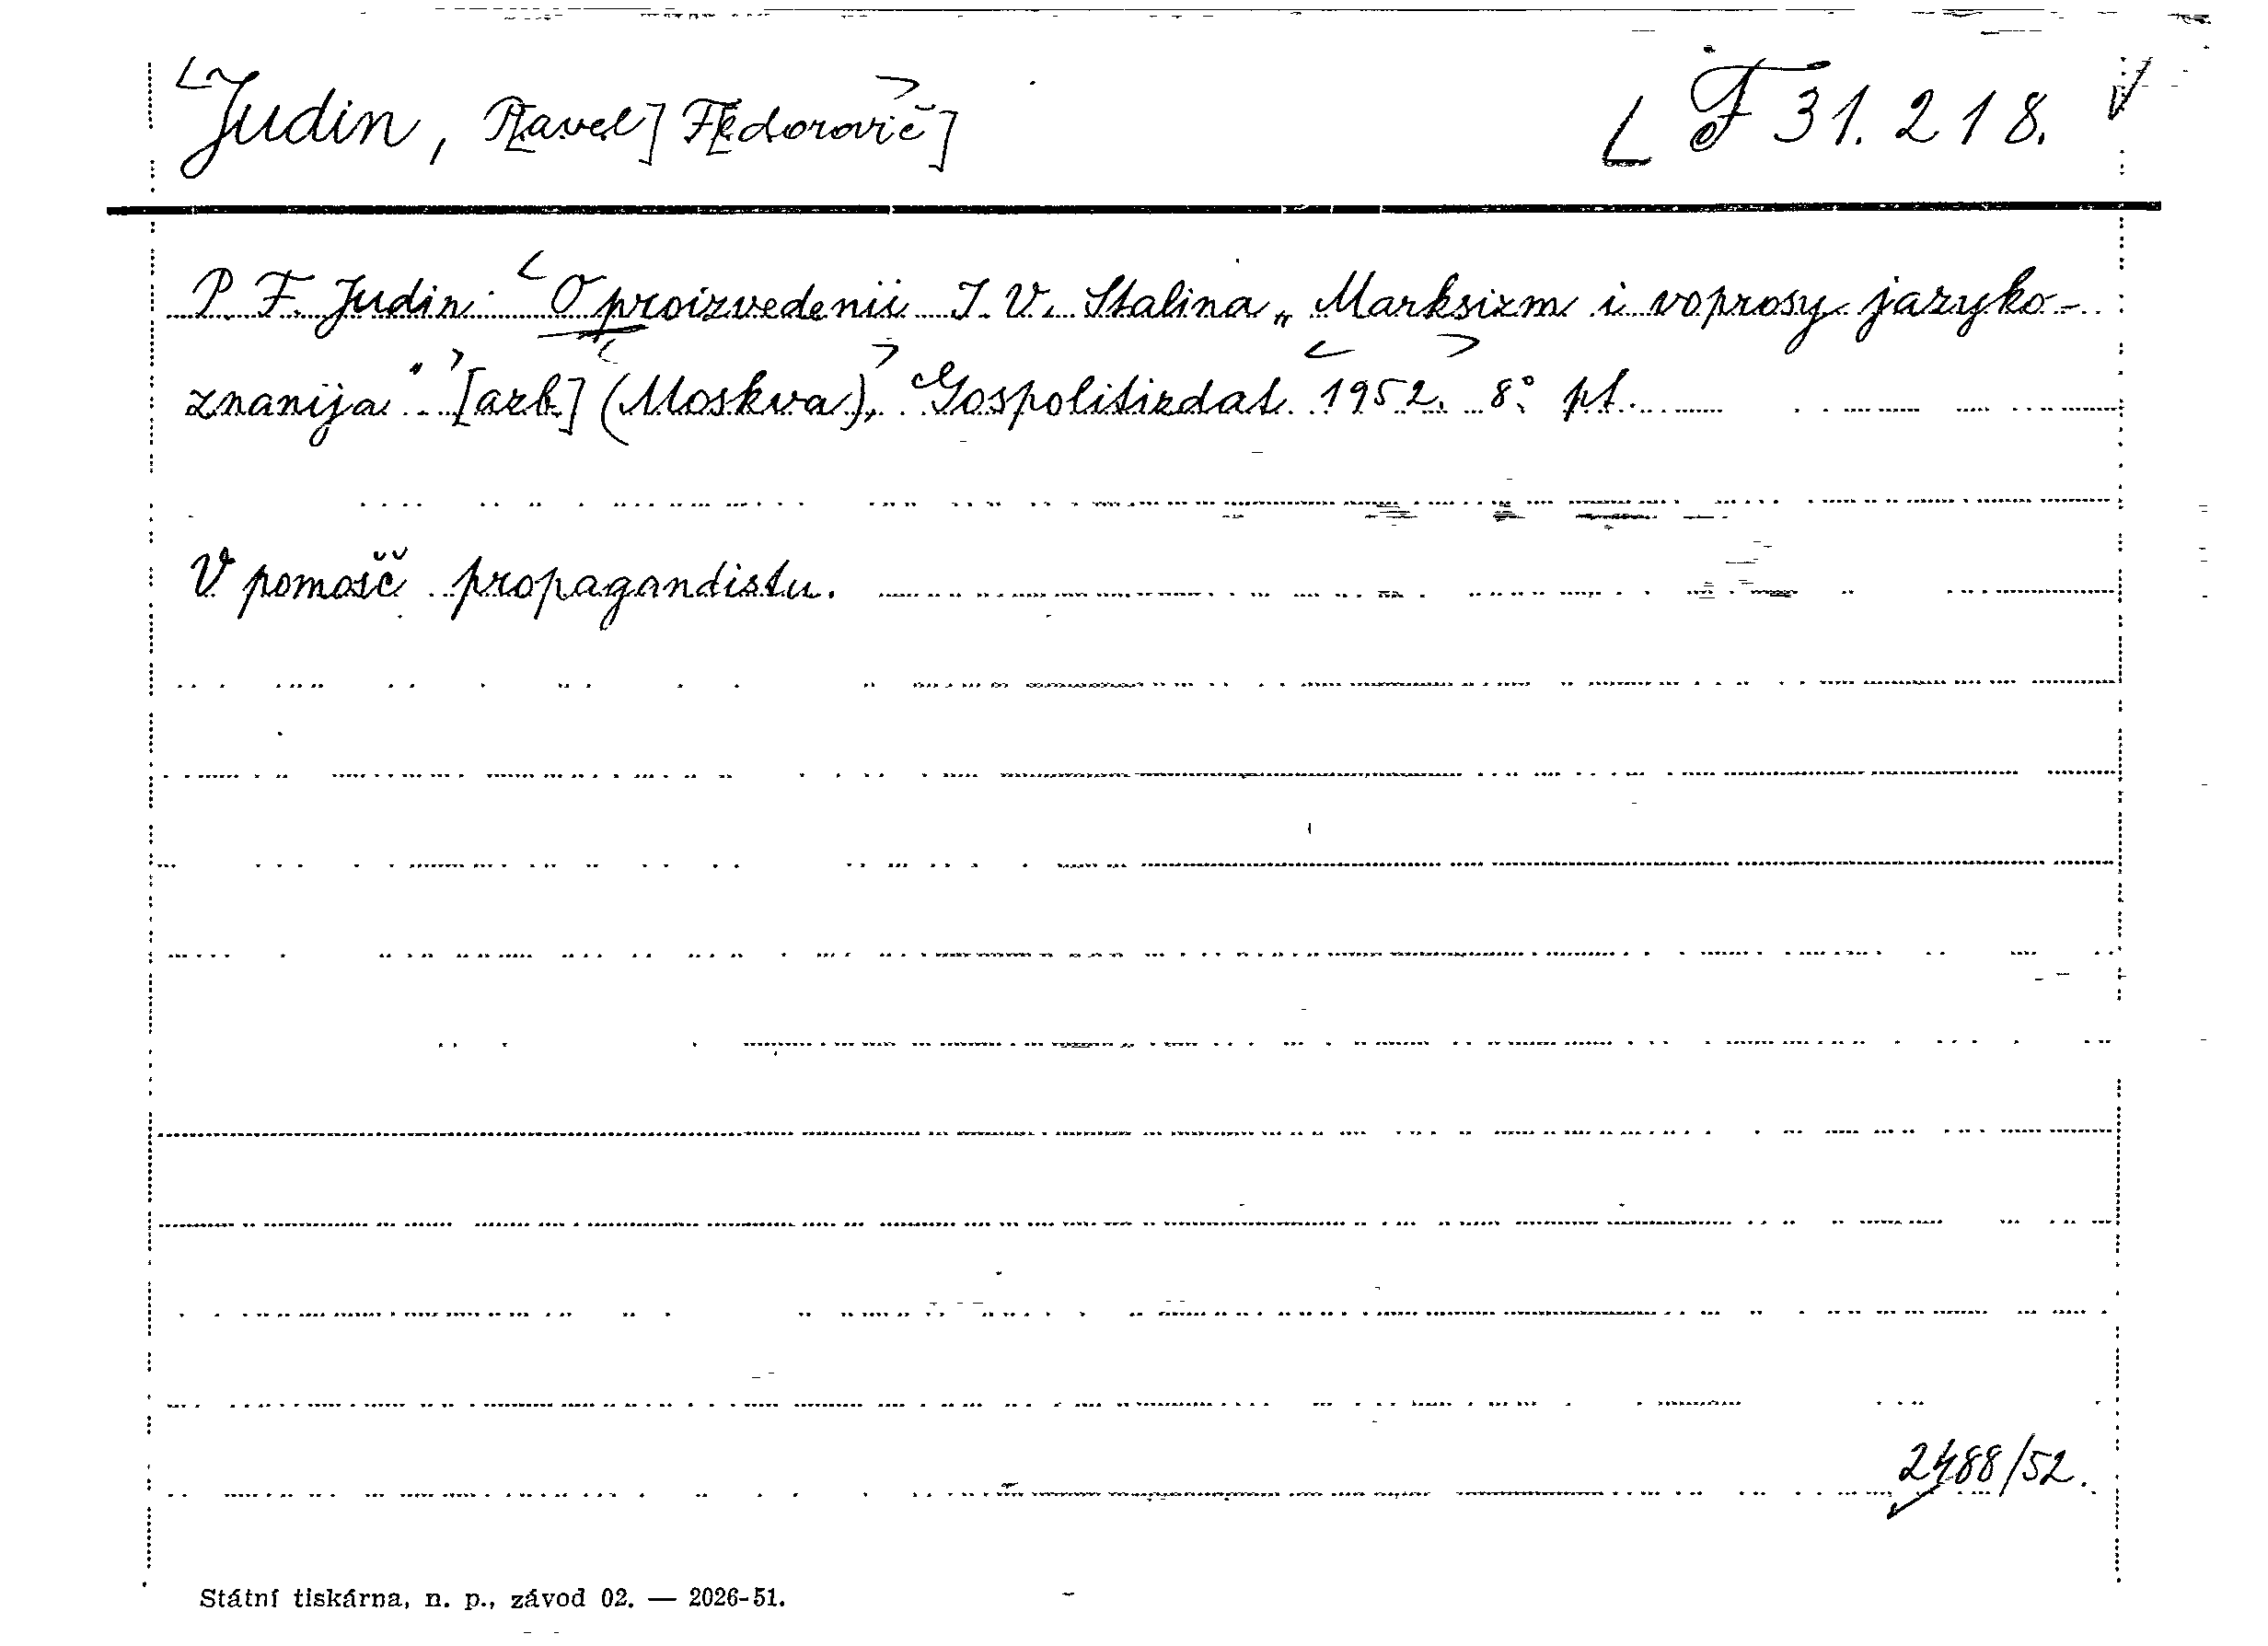 Judin, P[avel] F[edorovič] F 31.218.
P. F. Judin: O proizvedenii I. V. Stalina „Marksizm i voprosy jazyko-
znanija" [azb] (Moskva), Gospolitizdat 1952. 8° pt.
V pomošč propagandistu.
2488/52.
Státní tiskárna, n. p., závod 02. — 2026-51.